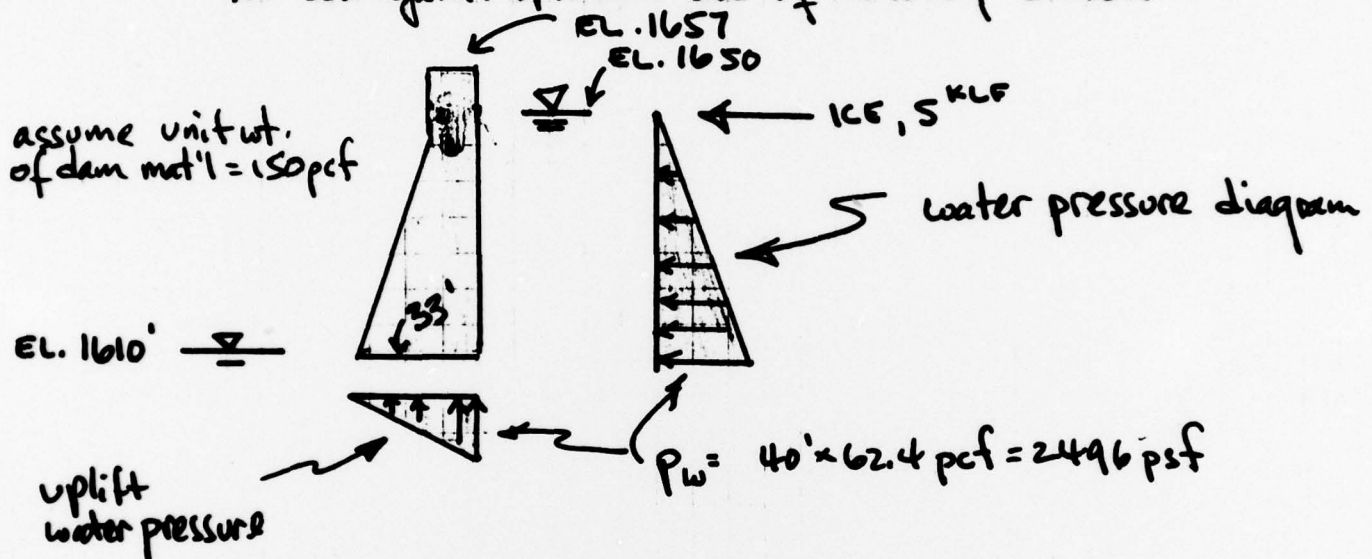 EL. 1657
EL. 1650
ICE, 5 KLF
assume unit wt.
of dam mat'l = 150 pcf
water pressure diagram
33'
EL. 1610'
Pw = 40' x 62.4 pcf = 2496 psf
uplift
water pressure